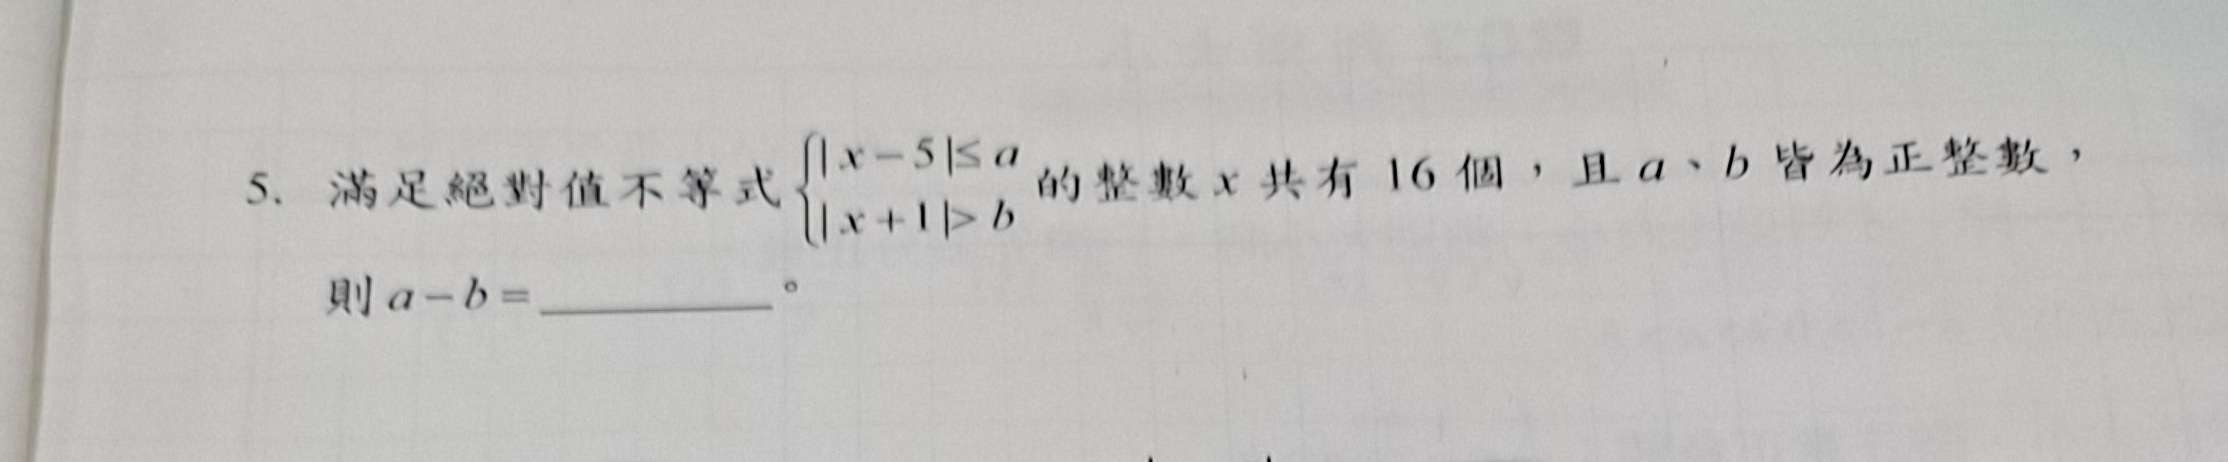 5. 滿足絕對值不等式 { |x−5|≤a |x+1|>b 的整數 x 共有 16 個，且 a、b 皆為正整數，
則 a−b=________。